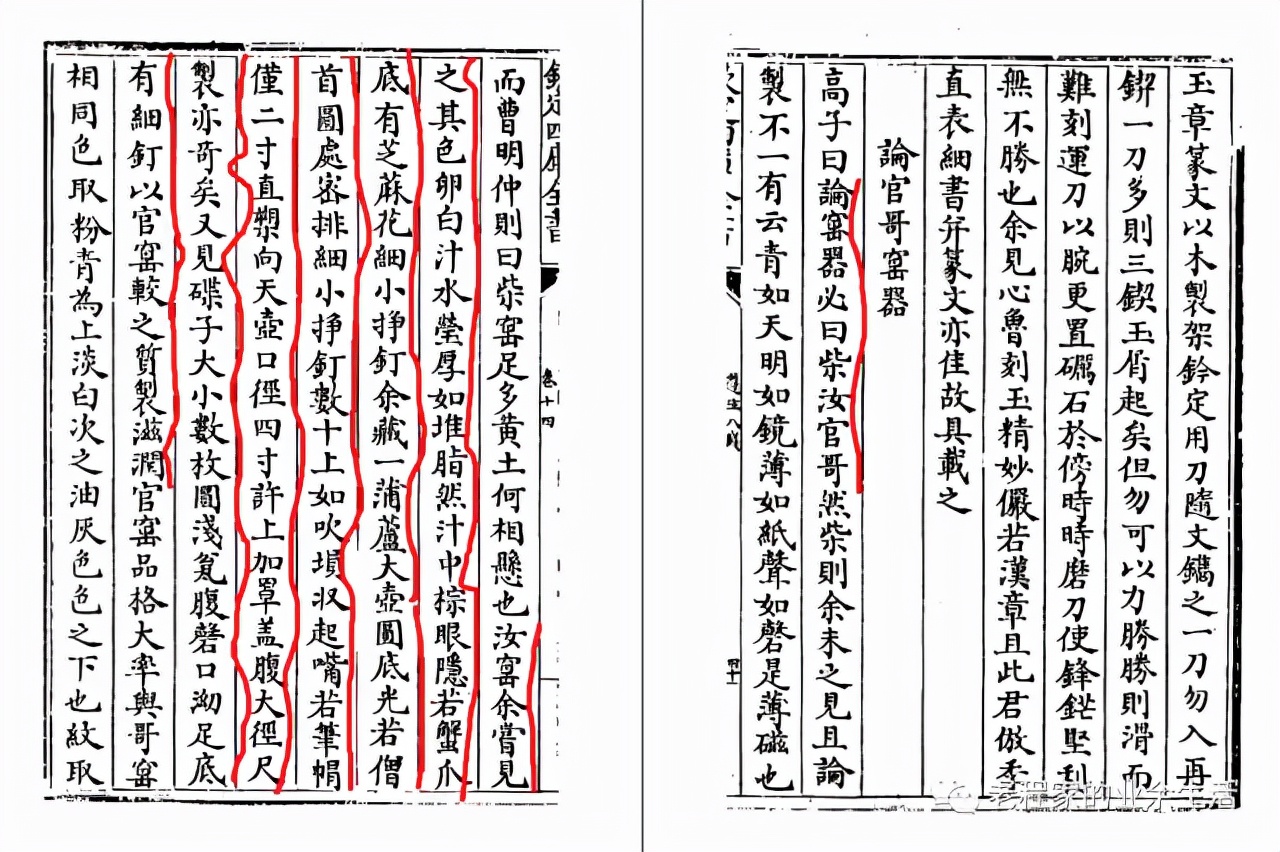 玉章篆文以木製架鈐定用刀隨文鐫之一刀勿入再
鍥一刀多則三鍥玉屑起矣但勿可以力勝勝則滑而
難刻運刀以腕更置礪石於傍時時磨刀使鋒鋩堅利
無不勝也余見心魯刻玉精妙儼若漢章且此君倣季
直表細書并篆文亦佳故具載之
論官哥窑器
高子曰論窑器必曰柴汝官哥然柴則余未之見且論
製不一有云青如天明如鏡薄如紙聲如磬是薄磁也
四十
欽定四庫全書
卷十四
而曹明仲則曰柴窑足多黄土何相懸也汝窑余嘗見
之其色卵白汁水瑩厚如堆脂然汁中棕眼隱若蟹爪
底有芝蔴花細小掙釘余藏一蒲蘆大壺圓底光若僧
首圓處密排細小掙釘數十上如吹塤収起嘴若筆帽
僅二寸直槊向天壺口徑四寸許上加罩盖腹大徑尺
製亦奇矣又見碟子大小數枚圓淺瓮腹磬口泑足底
有細釘以官窑較之質製滋潤官窑品格大率與哥窑
相同色取粉青為上淡白次之油灰色色之下也紋取
老程家的业余生活